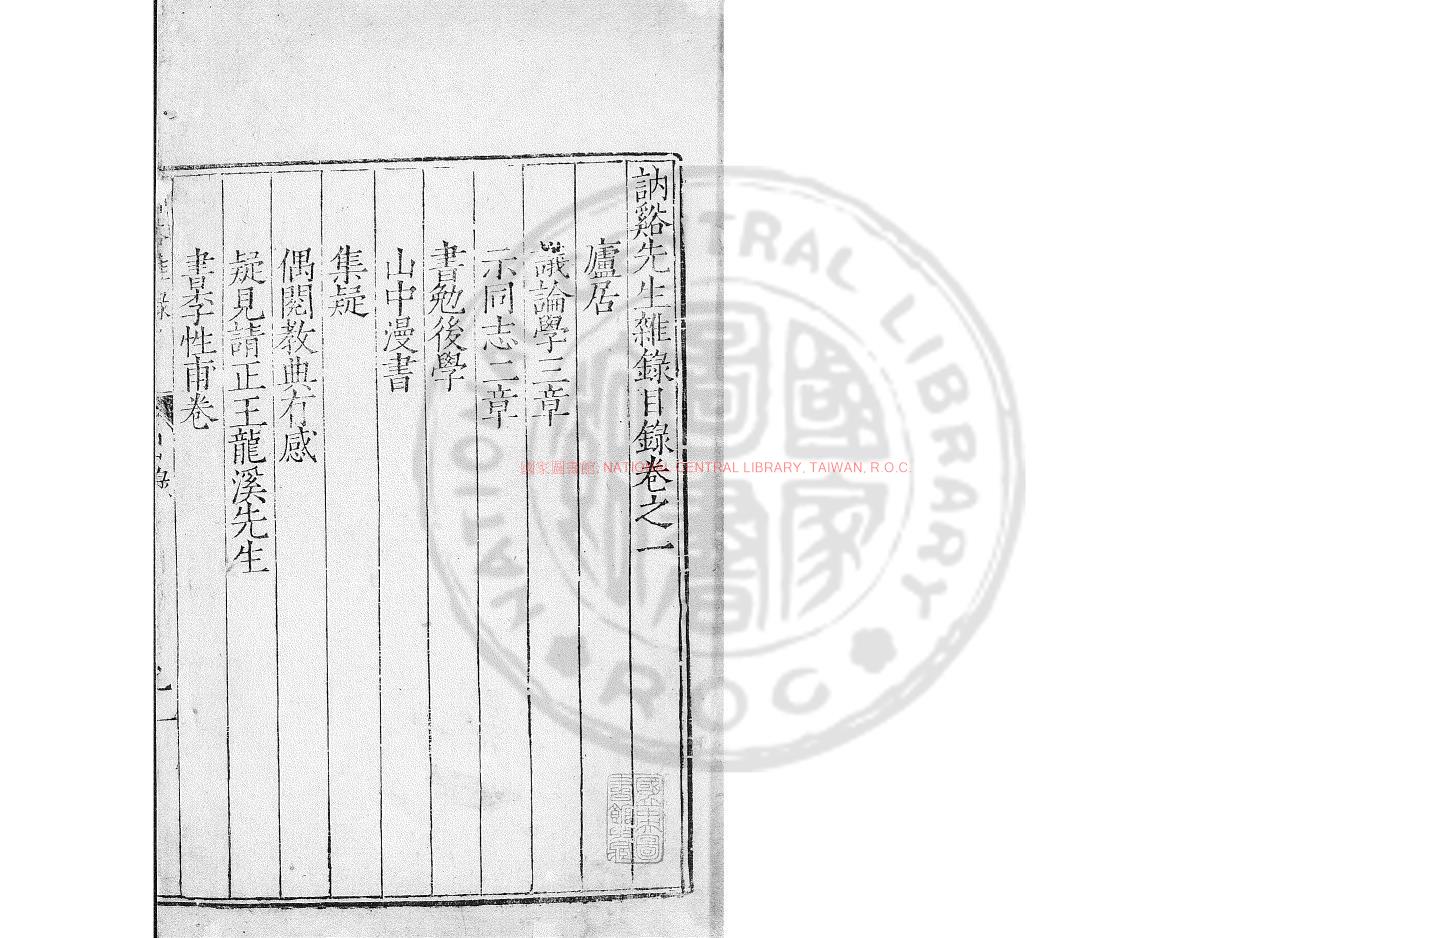 訥谿先生雜錄目錄卷之一
廬居
議論學三章
示同志二章
書勉後學
山中漫書
集疑
偶閱教典有感
疑見請正王龍溪先生
書晏子性甫卷
國家圖書館, NATIONAL CENTRAL LIBRARY, TAIWAN, R.O.C.
NATIONAL CENTRAL LIBRARY
R O C
國家圖書